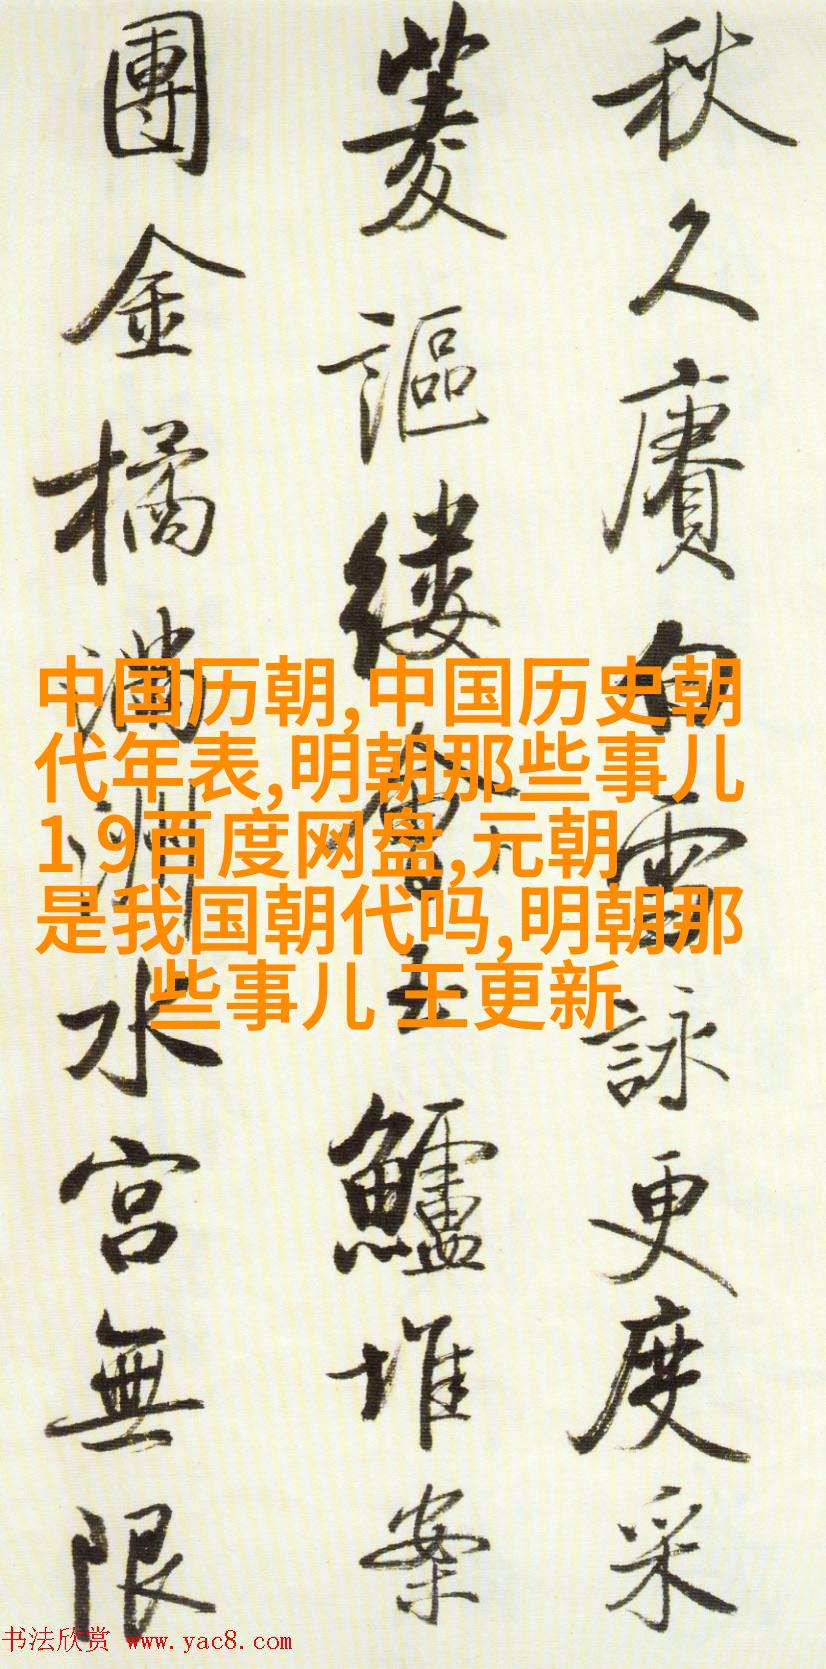 秋久賡白雪詠更度采
菱謳縷會玉鱸堆案
團金橘滿洲水宮無限
中国历朝,中国历史朝
代年表,明朝那些事儿
1 9百度网盘,元朝
是我国朝代吗,明朝那
些事儿 王更新
书法欣赏 www.yac8.com